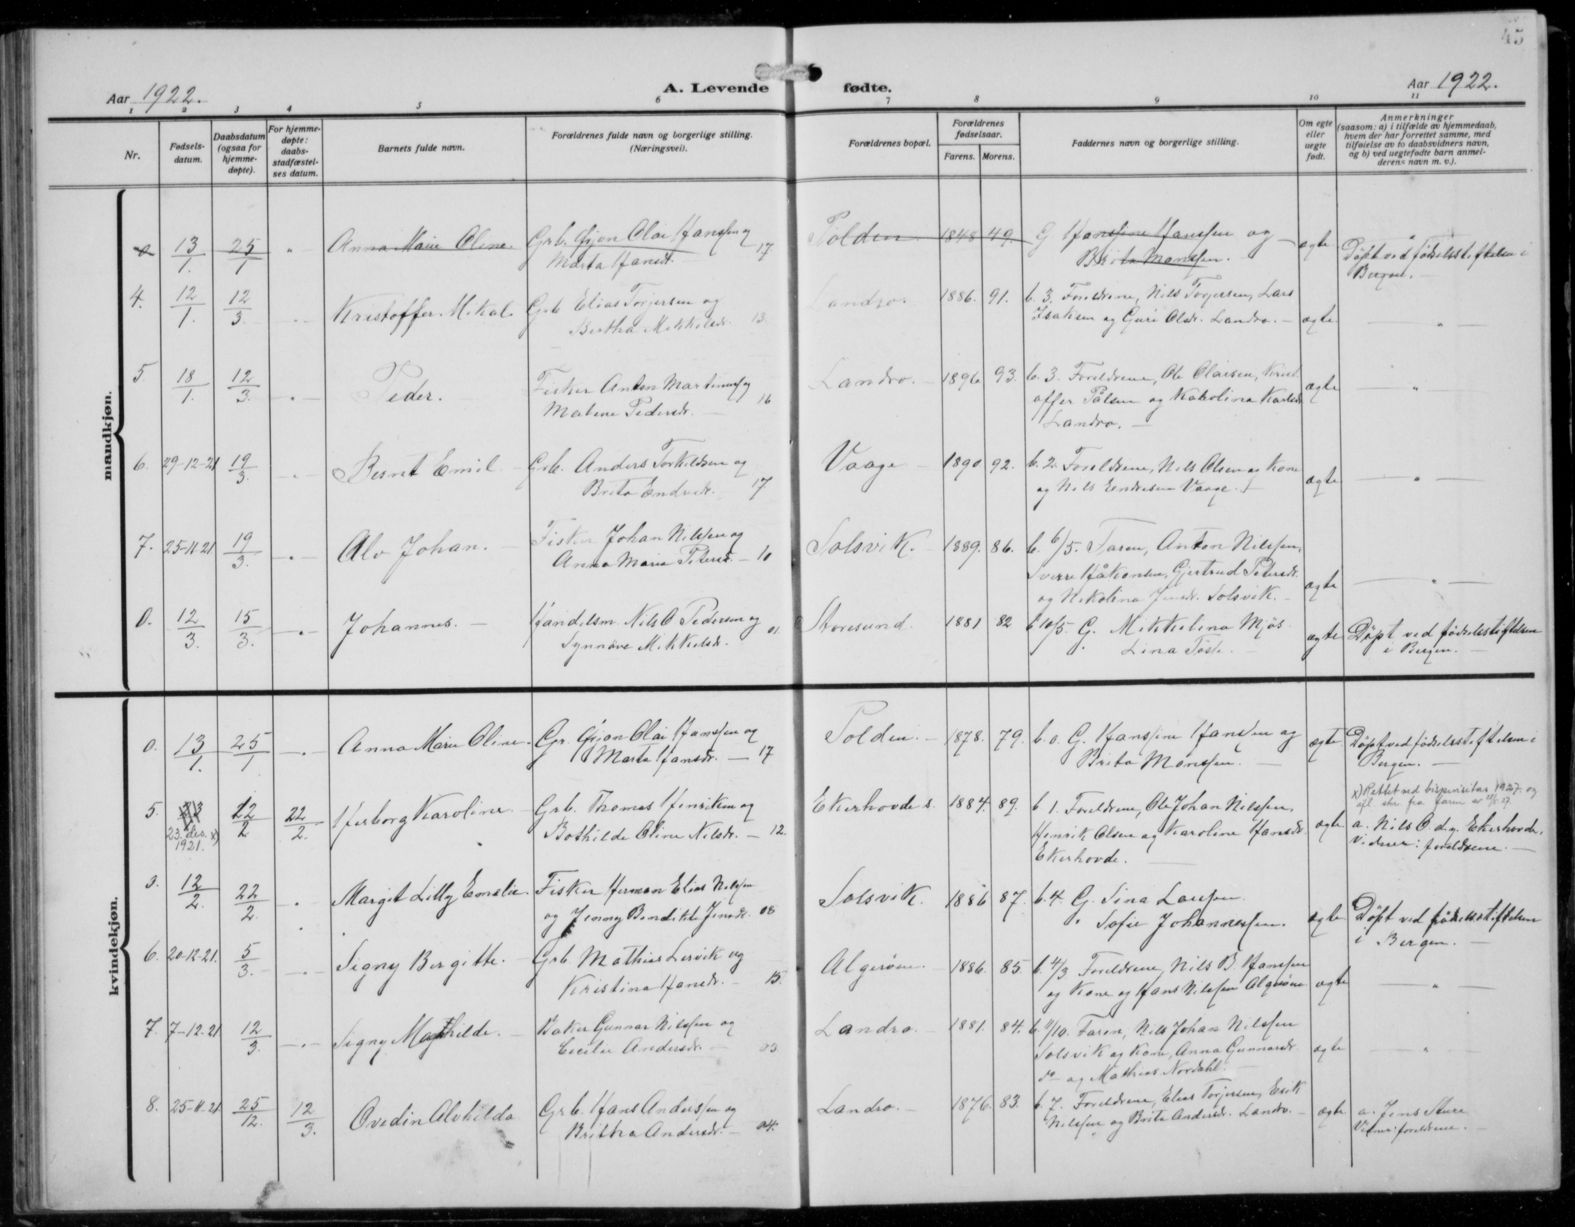 45
Aar 1922.
A. Levende fødte.
Aar 1922.
1 2 3 4 5 6 7 8 9 10 11
Nr.
Fødsels-
datum.
Daabsdatum
(ogsaa for
hjemme-
døpte).
For hjemme-
døpte:
daabs-
stadfæstel-
ses datum.
Barnets fulde navn.
Forældrenes fulde navn og borgerlige stilling.
(Næringsvei).
Forældrenes bopæl.
Forældrenes
fødselsaar.
Farens. Morens.
Faddernes navn og borgerlige stilling.
Om egte
eller
uegte
født.
Anmerkninger
(saasom: a) i tilfælde av hjemmedaab,
hvem der har forrettet samme, med
tilføielse av to daabsvidners navn,
og b) ved uegtefødte barn anmel-
derens navn m. v.).
mandkjøn.
0. 13/1. 25/1 " Anna Marie Oline. Grb. Gjon Olai Hanssen og
Marta Hansdr. 17
Tolden. 1848 49. G Hanssine Hanssen og
Brita Monssen. egte
Døpt ved fødselsstiftelsen i
Bergen.
4. 12/1. 12/3. Kristoffer Mikal. Grb Elias Torjersen og
Bertha Mikkelsdr. 13.
Landro. 1886. 91. b. 3. Foreldrene, Nils Torjersen, Lars
Isaksen og Guri Olsdr. Landro. egte "
5 18/1. 12/3. Peder. Fisker Anton Martinus og
Malene Pedersdr. 16
Landro. 1896 93. b. 3. Foreldrene, Ole Olaisen, Krist
offer Palsen og Karolina Karlsdr
Landro. egte "
6. 29-12-21 19/3. Bernt Emil Grb. Anders Torkildsen og
Brita Endresdr. 17
Vaage 1890 92. b. 2. Foreldrene, Nils Olsen og Kone
og Nils Endresen Vaage. egte "
7. 25-11 21 19/3. Alv Johan. Fisker Johan Nilssen og
Anna Maria Petersdr. 10
Solsvik. 1889. 86. b. 6/5. Faren, Anton Nilssen,
Sverre Håkonsen, Gjertrud Petersdr.
og Nikolina Jensdr. Solsvik. egte "
0. 12/3. 15/3. Johannes. Handelsm. Nils O Pedersen og
Synnøve Mikkelsdr. 01
Storesund. 1881 82 b 10/5. G. Mikkelina Mjøs
Lina egte
Døpt ved fødselsstiftelsen
i Bergen.
kvindekjøn.
0. 13/1. 25/1 Anna Marie Oline. Gr. Gjon Olai Hanssen og
Marta Hansdr. 17
Tolden. 1878. 79. b. 0. G. Hanssine Hanssen og
Brita Monssen. egte
Døpt ved fødselsstiftelsen i
Bergen.
5. 23. des. x)
1921.
22/2 22/2. Herborg Karoline Grb. Thomas Henriksen og
Bothilde Oline Nilsdr. 12.
Ekerhovde s. 1884. 89. b 1. Foreldrene, Ole Johan Nilssen,
Henrik Olsen og Karoline Hansdr.
Ekerhovde. egte
x) Rettet ved bispevisitas 1927. og
a. Nils O. d.y. Ekerhovde.
Vidner: foreldrene.
3. 12/2. 22/2. Margit Lilly Emelie. Fisker Herman Elias Nilssen
og Jenny Bendikte Jensdr. 08
Solsvik. 1886 87. b. 4. G. Sina Larssen.
" Sofie Johannessen. egte
Døpt ved fødselsstiftelsen
i Bergen.
6. 20-12-21. 5/3. Signy Bergitte. Grb. Mathias Lervik og
Kristina Hansdr. 15.
Algerøen. 1886. 85. b. 4/3 Foreldrene, Nils B. Hanssen
og Kone og Hans Nilssen Algerøen egte "
7. 7-12-21 12/3. Signy Mathilde. Baker Gunnar Nilssen og
Cecilie Andersdr. 03.
Landro. 1881. 84. b 11/10. Faren, Nils Johan Nilssen
Solsvik og Kone, Anna Gunnarsdr.
do og Mathias Nordahl. egte "
8. 25-11-21. 25/12. 12/3. Ovedin Alvhilda Grb. Hans Anderssen og
Britha Andersdr. 04.
Landro. 1876. 83. b. 7. Foreldrene, Elias Torjersen, Erik
Nilssen og Brita Andersdr. Landro. egte
a. Jens Sture
Vidner: foreldrene.